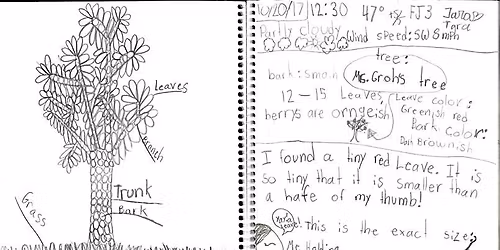 leaves
Branch
Trunk
Bark
Grass
10/20/17 12:30 47° FJ3
Tara
Partly cloudy Wind speed: SW 8 mph
tree:
bark: smooth Ms. Groh's tree
12-15 Leaves
berrys are orngeish
Leave color:
Greenish red
Bark color:
Dark Brownish
I found a tiny red Leave. It is
so tiny that it is smaller than
a hafe of my thumb!
This is the exact size:
Me Holding